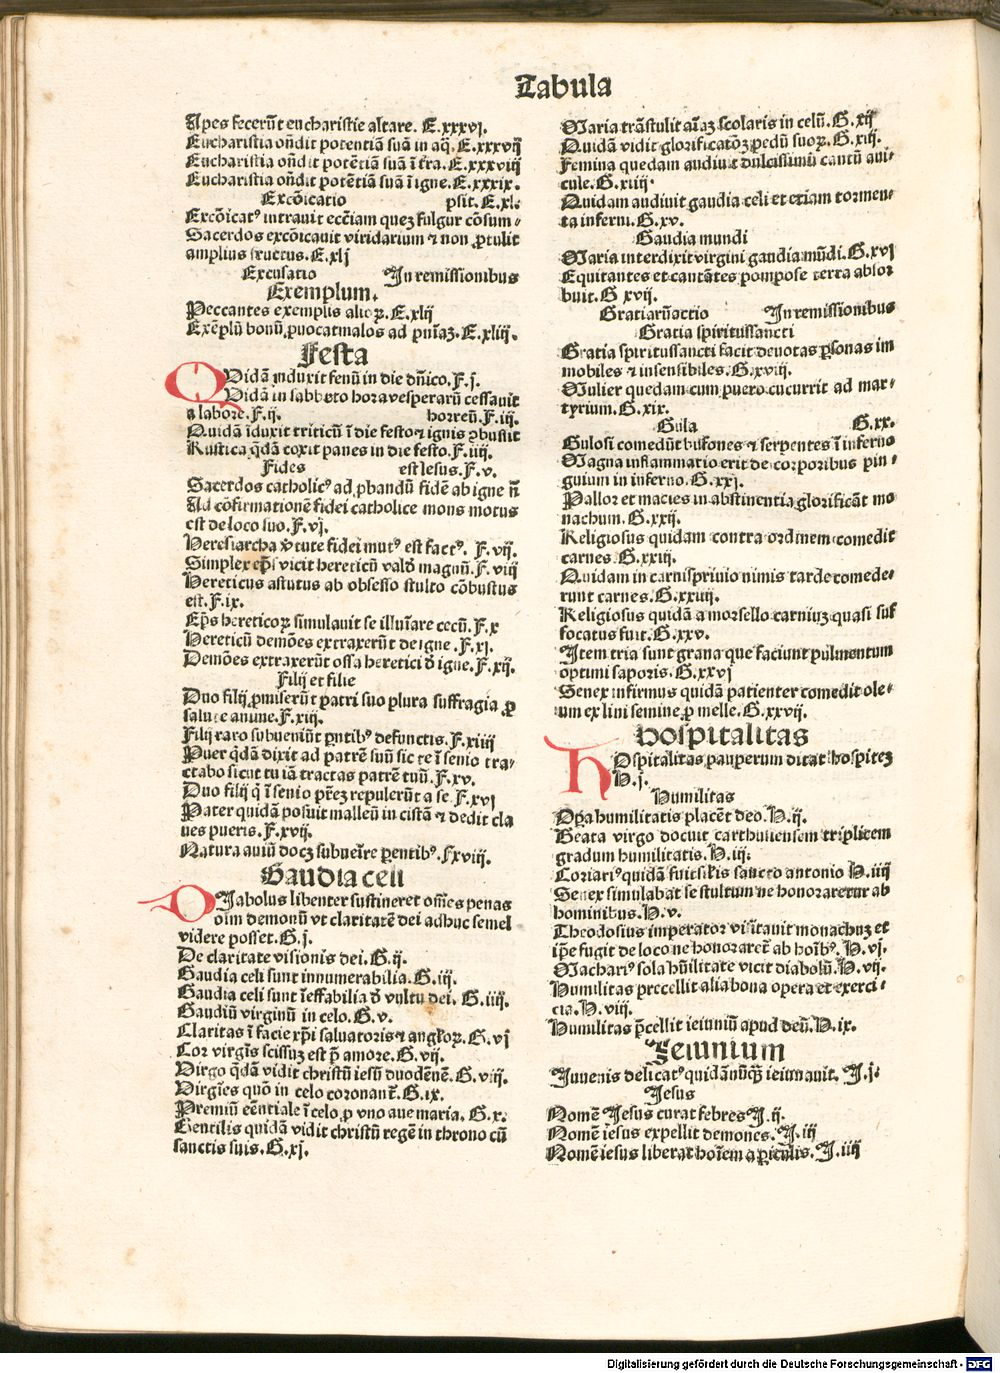 Tabula
Apes fecerūt eucharistie altare. E.xxxvj.
Eucharistia oñdit potentiā suā in aq̄. E.xxxvij
Eucharistia oñdit potētiā suā ī tr̄a. E.xxxviij
Eucharistia oñdit potētiā suā ī igne. E.xxxix.
Excōicatio psit. E.xl.
Excōicatꝰ intrauit ecc̄iam quez fulgur cōsum⸗
Sacerdos excōicauit viridarium ⁊ non ꝓtulit
amplius fructus. E.xlj
Excusatio In remissionibus
Exemplum.
Peccantes exemplis alioꝝ. E.xlij
Exēplū bonū ꝓuocat malos ad pn̄iaz. E.xliij.
Festa
QUidā induxit fenū in die dn̄ico. F.j.
Quidā in sabbato hora vesperarū cessauit
a labore. F.ij. horreū. F.iij.
Quidā īduxit triticū ī die festo ⁊ ignis ꝯbussit
Rustica q̄dā coxit panes in die festo. F.iiij.
Fides est Iesus. F.v.
Sacerdos catholicꝰ ad ꝓbandū fidē ab igne n̄
Ad cōfirmationē fidei catholice mons motus
est de loco suo. F.vj.
Heresiarcha v̄tute fidei mutꝰ est factꝰ. F.vij.
Simplex ep̄s vicit hereticū valđ magnū. F.viij
Hereticus astutus ab obsesso stulto cōbustus
est. F.ix.
Ep̄s hereticoꝝ simulauit se illuīare cecū. F.x
Hereticū demōes extraxerūt de igne. F.xj.
Demōes extraxerūt ossa heretici đ igne. F.xij.
Filij et filie
Duo filij ꝓmiserūt patri suo plura suffragia ꝓ
salute anime. F.xiij.
Filij raro subueniūt pn̄tibꝰ defunctis. F.xiiij
Puer q̄dā dixit ad patrē suū sic te ī senio tra⸗
ctabo sicut tu iā tractas patrē tuū. F.xv.
Duo filij q̄ ī senio pr̄ez repulerūt a se. F.xvj
Pater quidā posuit malleū in cistā ⁊ dedit cla
ues pueris. F.xvij.
Natura auiū docz subueīre ꝑentibꝰ. F.xviij.
Gaudia celi
DIabolus libenter sustineret om̄es penas
oīm demonū vt claritatē dei adhuc semel
videre posset. G.j.
De claritate visionis dei. G.ij.
Gaudia celi sunt innumerabilia. G.iij.
Gaudia celi sunt īeffabilia đ vultu dei. G.iiij.
Gaudiū virginū in celo. G.v.
Claritas ī facie xp̄i saluatoris ⁊ angl̄oꝝ. G.vj
Cor virgīs scissuz est p̄ amore. G.vij.
Virgo q̄dā vidit christū iesū duodēnē. G.viij.
Virgīes quō in celo coronant̄. G.ix.
Premiū eēntiale ī celo ꝓ vno aue maria. G.x.
Gentilis quidā vidit christū regē in throno cū
sanctis suis. G.xj.
Maria trāstulit aīaz scolaris in celū. G.xij
Quidā vidit glorificatōz pedū suoꝝ. G.xiij.
Femina quedam audiuit dulcissimū cantū aui⸗
cule. G.xiiij.
Quidam audiuit gaudia celi et etiam tormen⸗
ta inferni. G.xv.
Gaudia mundi
Maria interdixit virgini gaudia mūdi. G.xvj
Equitantes et cantātes pompose terra absor
buit. G xvij.
Gratiarūactio In remissionibus
Gratia spiritussancti
Gratia spiritussancti facit deuotas ꝑsonas im
mobiles ⁊ insensibiles. G.xviij.
Mulier quedam cum puero cucurrit ad mar⸗
tyrium. G.xix.
Gula G.xx.
Gulosi comedūt bufones ⁊ serpentes ī inferno
Magna inflammatio erit de corporibus pin⸗
guium in inferno. G.xxj.
Pallor et macies in abstinentia glorificāt mo
nachum. G.xxij.
Religiosus quidam contra ordinem comedit
carnes. G.xxiij.
Quidam in carnispriuio nimis tarde comede⸗
runt carnes. G.xxiiij.
Religiosus quidā a morsello carniuz quasi suf
focatus fuit. G.xxv.
Item tria sunt grana que faciunt pulmentum
optimi saporis. G.xxvj
Senex infirmus quidā patienter comedit ole⸗
um ex lini semine ꝓ melle. G.xxvij.
Hospitalitas
HOspitalitas pauperum ditat hospitez
H.j.
Humilitas
Oꝑa humilitatis placēt deo. H.ij.
Beata virgo docuit carthusiensem triplicem
gradum humilitatis. H.iij.
Coriariꝰ quidā fuit sil̄is sancto antonio H.iiij
Senex simulabat se stultum ne honoraretur ab
hominibus. H.v.
Theodosius imperator visitauit monachuz et
ip̄e fugit de loco ne honoraret̄ ab hoībꝰ. H.vj.
Machariꝰ sola hūilitate vicit diabolū. H.vij.
Humilitas precellit alia bona opera et exerci⸗
cia. H.viij.
Humilitas p̄cellit ieiuniū apud deū. H.ix.
Ieiunium
Iuuenis delicatꝰ quidā nūq̄ ieiunauit. I.j.
Jesus
Nomē Jesus curat febres I.ij.
Nomē iesus expellit demones. I.iij
Nomē iesus liberat hoīem a ꝑiculis. I.iiij
Digitalisierung gefördert durch die Deutsche Forschungsgemeinschaft - DFG